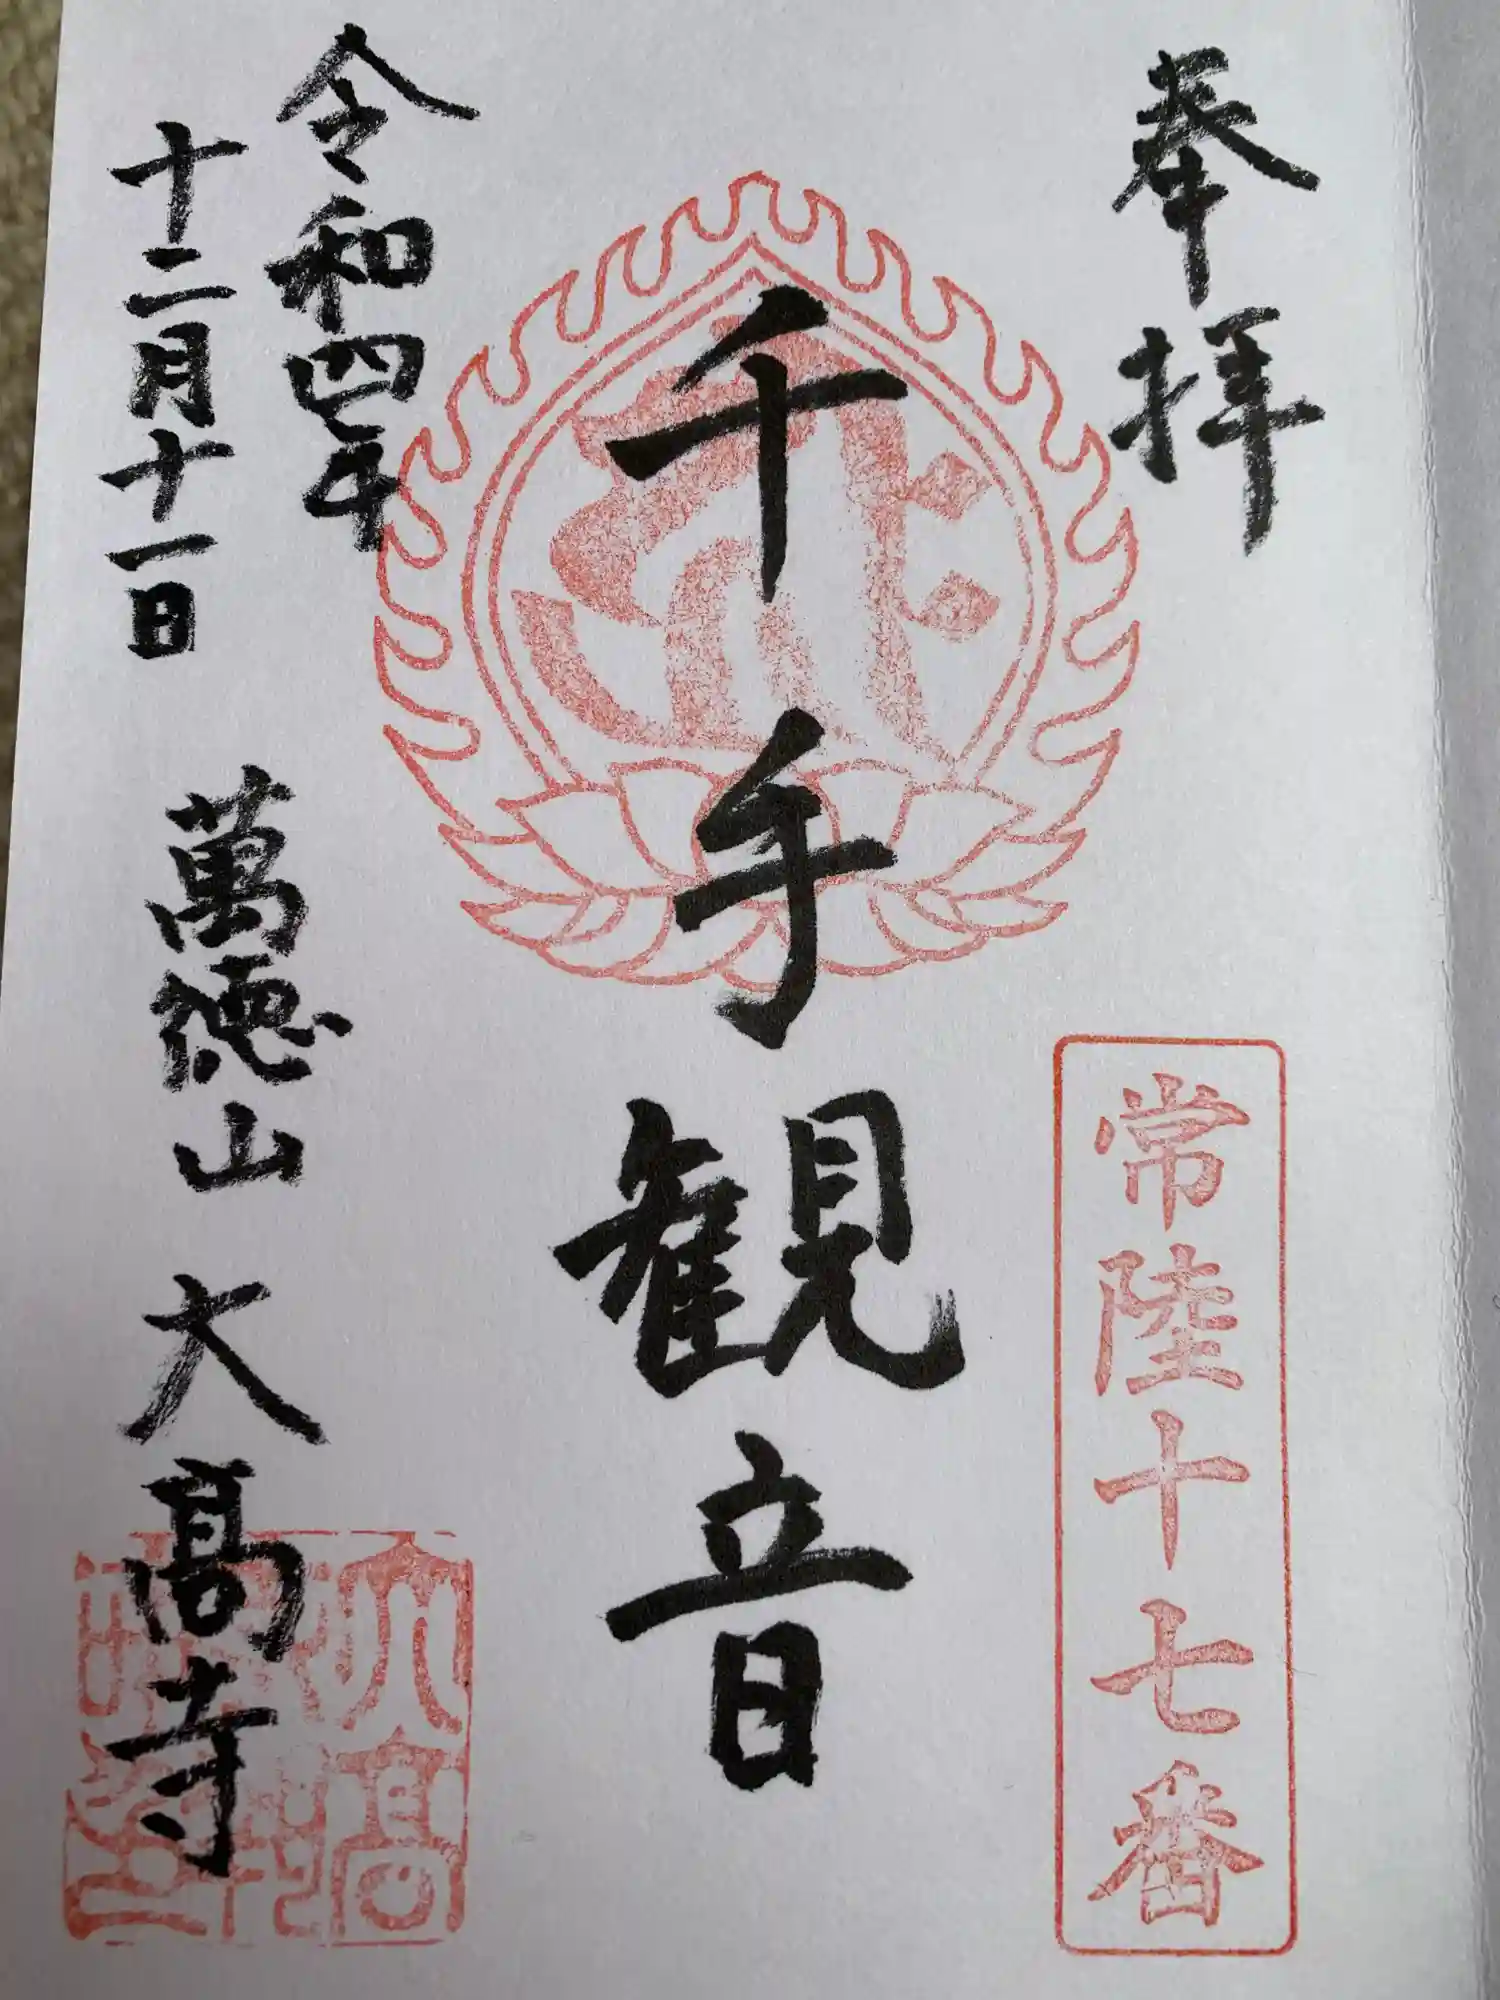 奉拝
常陸十七番
千手観音
令和四年
十二月十一日
萬徳山 大高寺